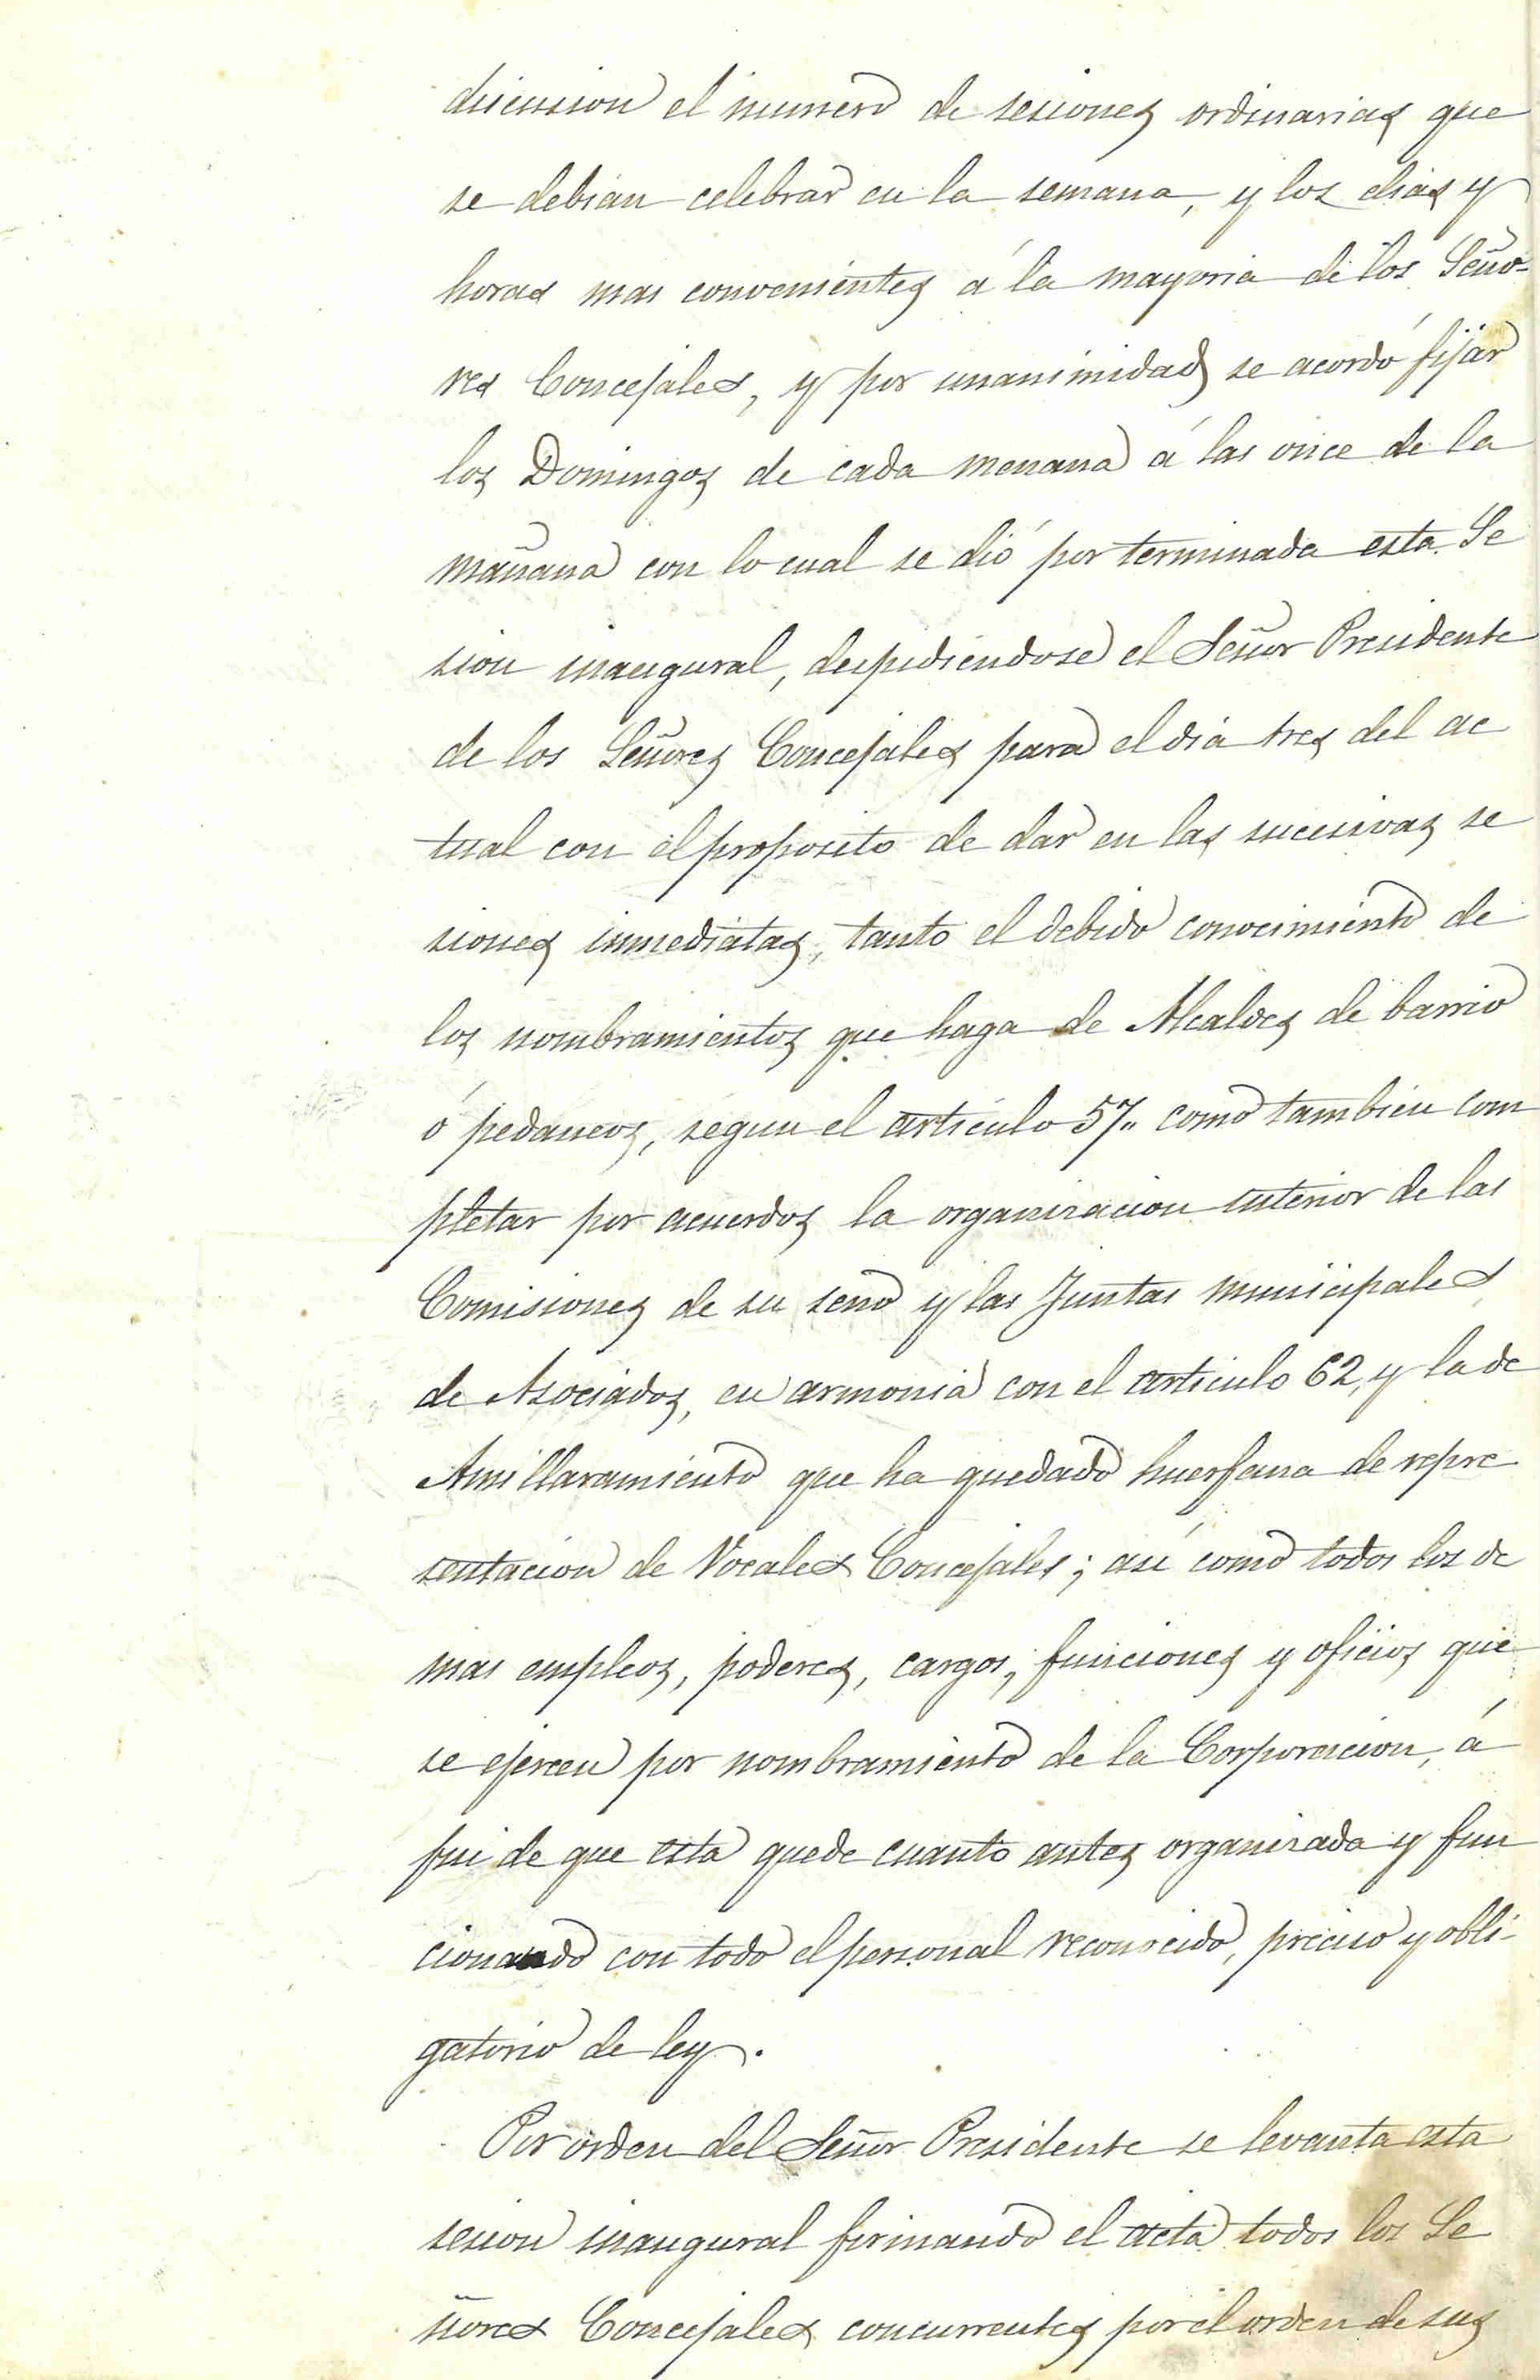 discusion el numero de sesiones ordinarias que
se debian celebrar en la semana, y los dias y
horas mas convenientes á la mayoria de los Seño-
res Concejales, y por unanimidad se acordó fijar
los Domingos de cada menana á las once de la
mañana con lo cual se dió por terminada esta Se
sion inaugural, despidiendose el Señor Presidente
de los Señores Concejales para el dia tres del ac
tual con el proposito de dar en las sucesivas se
siones inmediatas, tanto el debido conocimiento de
los nombramientos que haga de Alcaldes de barrio
ó pedaneos, segun el articulo 57" como tambien com
pletar por acuerdos la organizacion interior de las
Comisiones de su seno y las Juntas municipales
de Asociados, en armonia con el articulo 62, y la de
Amillaramiento que ha quedado huerfana de repre
sentacion de Vocales Concejales; asi como todos los de
mas empleos, poderes, cargos, funciones y oficios que
se ejercen por nombramiento de la Corporacion, á
fin de que esta quede cuanto antes organizada y fun
cionando con todo el personal reconocido, preciso y obli-
gatorio de ley.
Por orden del Señor Presidente se levanta esta
sesion inaugural firmando el acta todos los Se
ñores Concejales concurrentes por el orden de sus